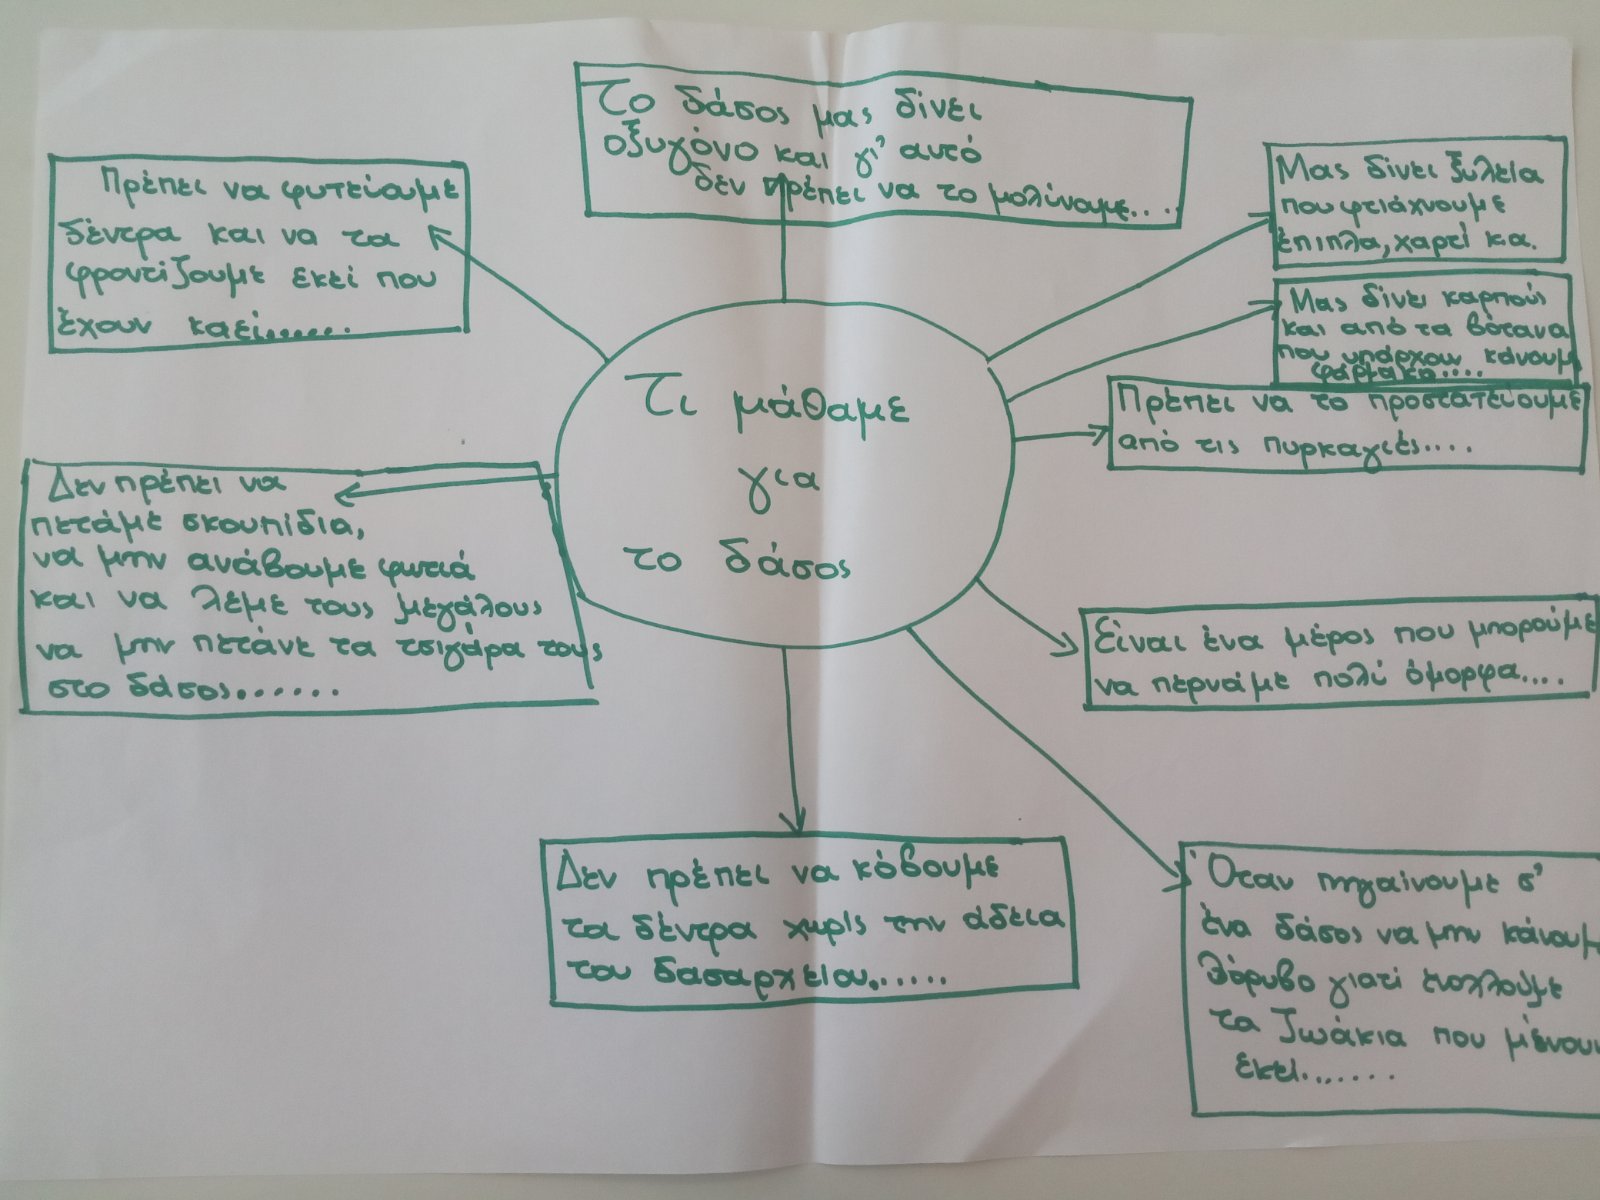 Το δάσος μας δίνει
οξυγόνο και γι' αυτό
δεν πρέπει να το μολύνουμε....
Πρέπει να φυτεύουμε
δέντρα και να τα
φροντίζουμε εκεί που
έχουν καεί......
Μας δίνει ξυλεία
που φτιάχνουμε
έπιπλα, χαρτί κ.α.
Μας δίνει καρπούς
και από τα βότανα
που υπάρχουν κάνουμε
φάρμακα....
Πρέπει να το προστατεύουμε
από τις πυρκαγιές....
Τι μάθαμε
για
το δάσος
Δεν πρέπει να
πετάμε σκουπίδια,
να μην ανάβουμε φωτιά
και να λέμε τους μεγάλους
να μην πετάνε τα τσιγάρα τους
στο δάσος......
Είναι ένα μέρος που μπορούμε
να περνάμε πολύ όμορφα....
Δεν πρέπει να κόβουμε
τα δέντρα χωρίς την άδεια
του δασαρχείου......
Όταν πηγαίνουμε σ'
ένα δάσος να μην κάνουμ
θόρυβο γιατί ενοχλούμε
τα ζωάκια που μένουν
εκεί.......